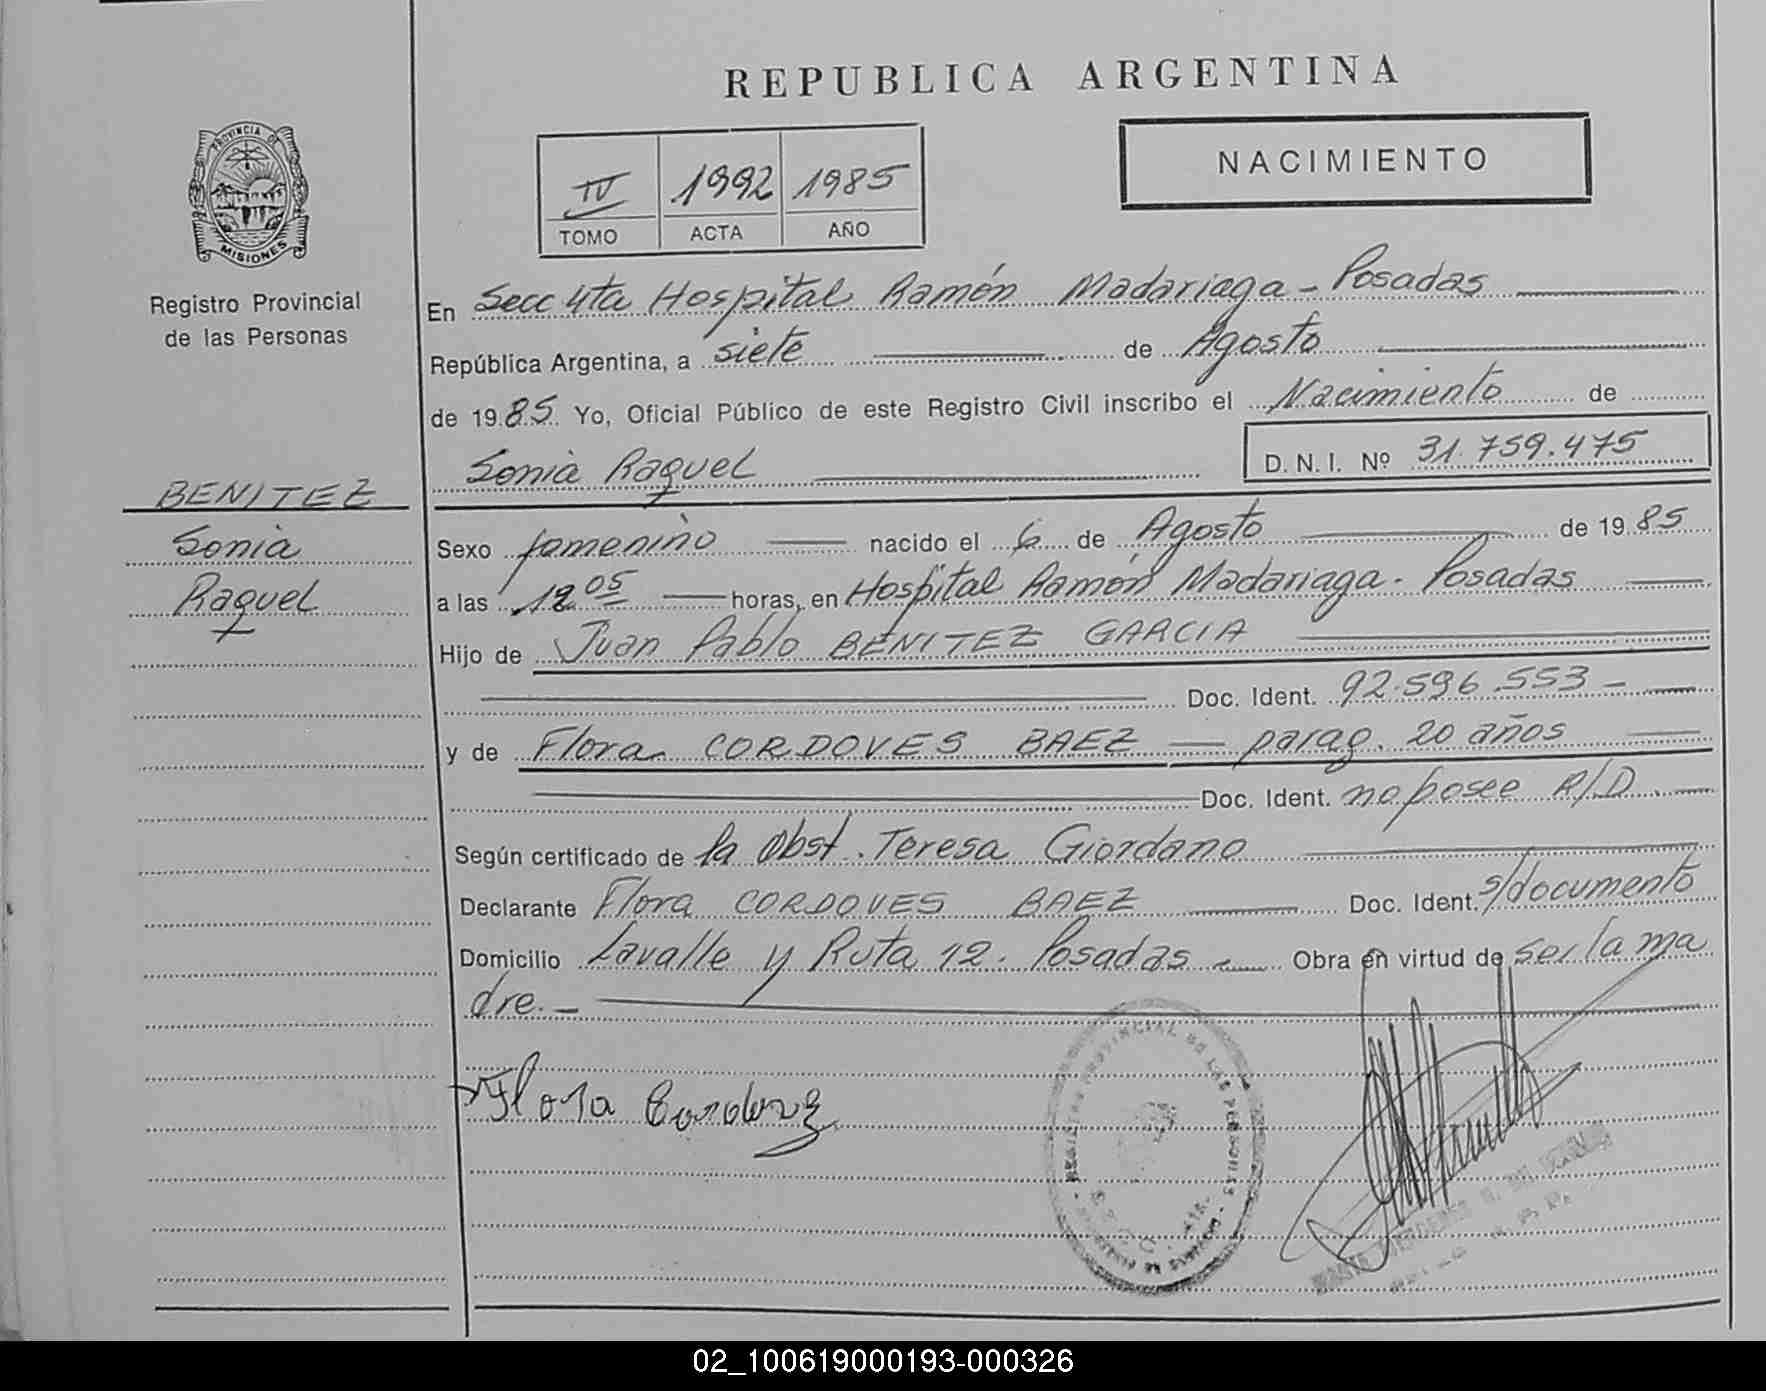 REPUBLICA ARGENTINA
PROVINCIA DE
MISIONES
Registro Provincial
de las Personas
IV 1992 1985
TOMO ACTA AÑO
NACIMIENTO
En Secc 4ta Hospital Ramón Madariaga - Posadas
República Argentina, a siete de Agosto
de 1985. Yo, Oficial Público de este Registro Civil inscribo el Nacimiento de
Sonia Raquel D. N. I. Nº 31.759.475
BENITEZ
Sonia
Raquel
Sexo femenino nacido el 6 de Agosto de 1985
a las 12 05 horas, en Hospital Ramón Madariaga - Posadas
Hijo de Juan Pablo BENITEZ GARCIA
Doc. Ident. 92.596.553 -
y de Flora CORDOVES BAEZ - parag. 20 años
Doc. Ident. no posee R/D.
Según certificado de la Obst. Teresa Giordano
Declarante Flora CORDOVES BAEZ Doc. Ident. s/documento
Domicilio Lavalle y Ruta 12. Posadas Obra en virtud de ser la ma
dre. -
Flora
REGISTRO PROVINCIAL DE LAS PERSONAS
02_100619000193-000326